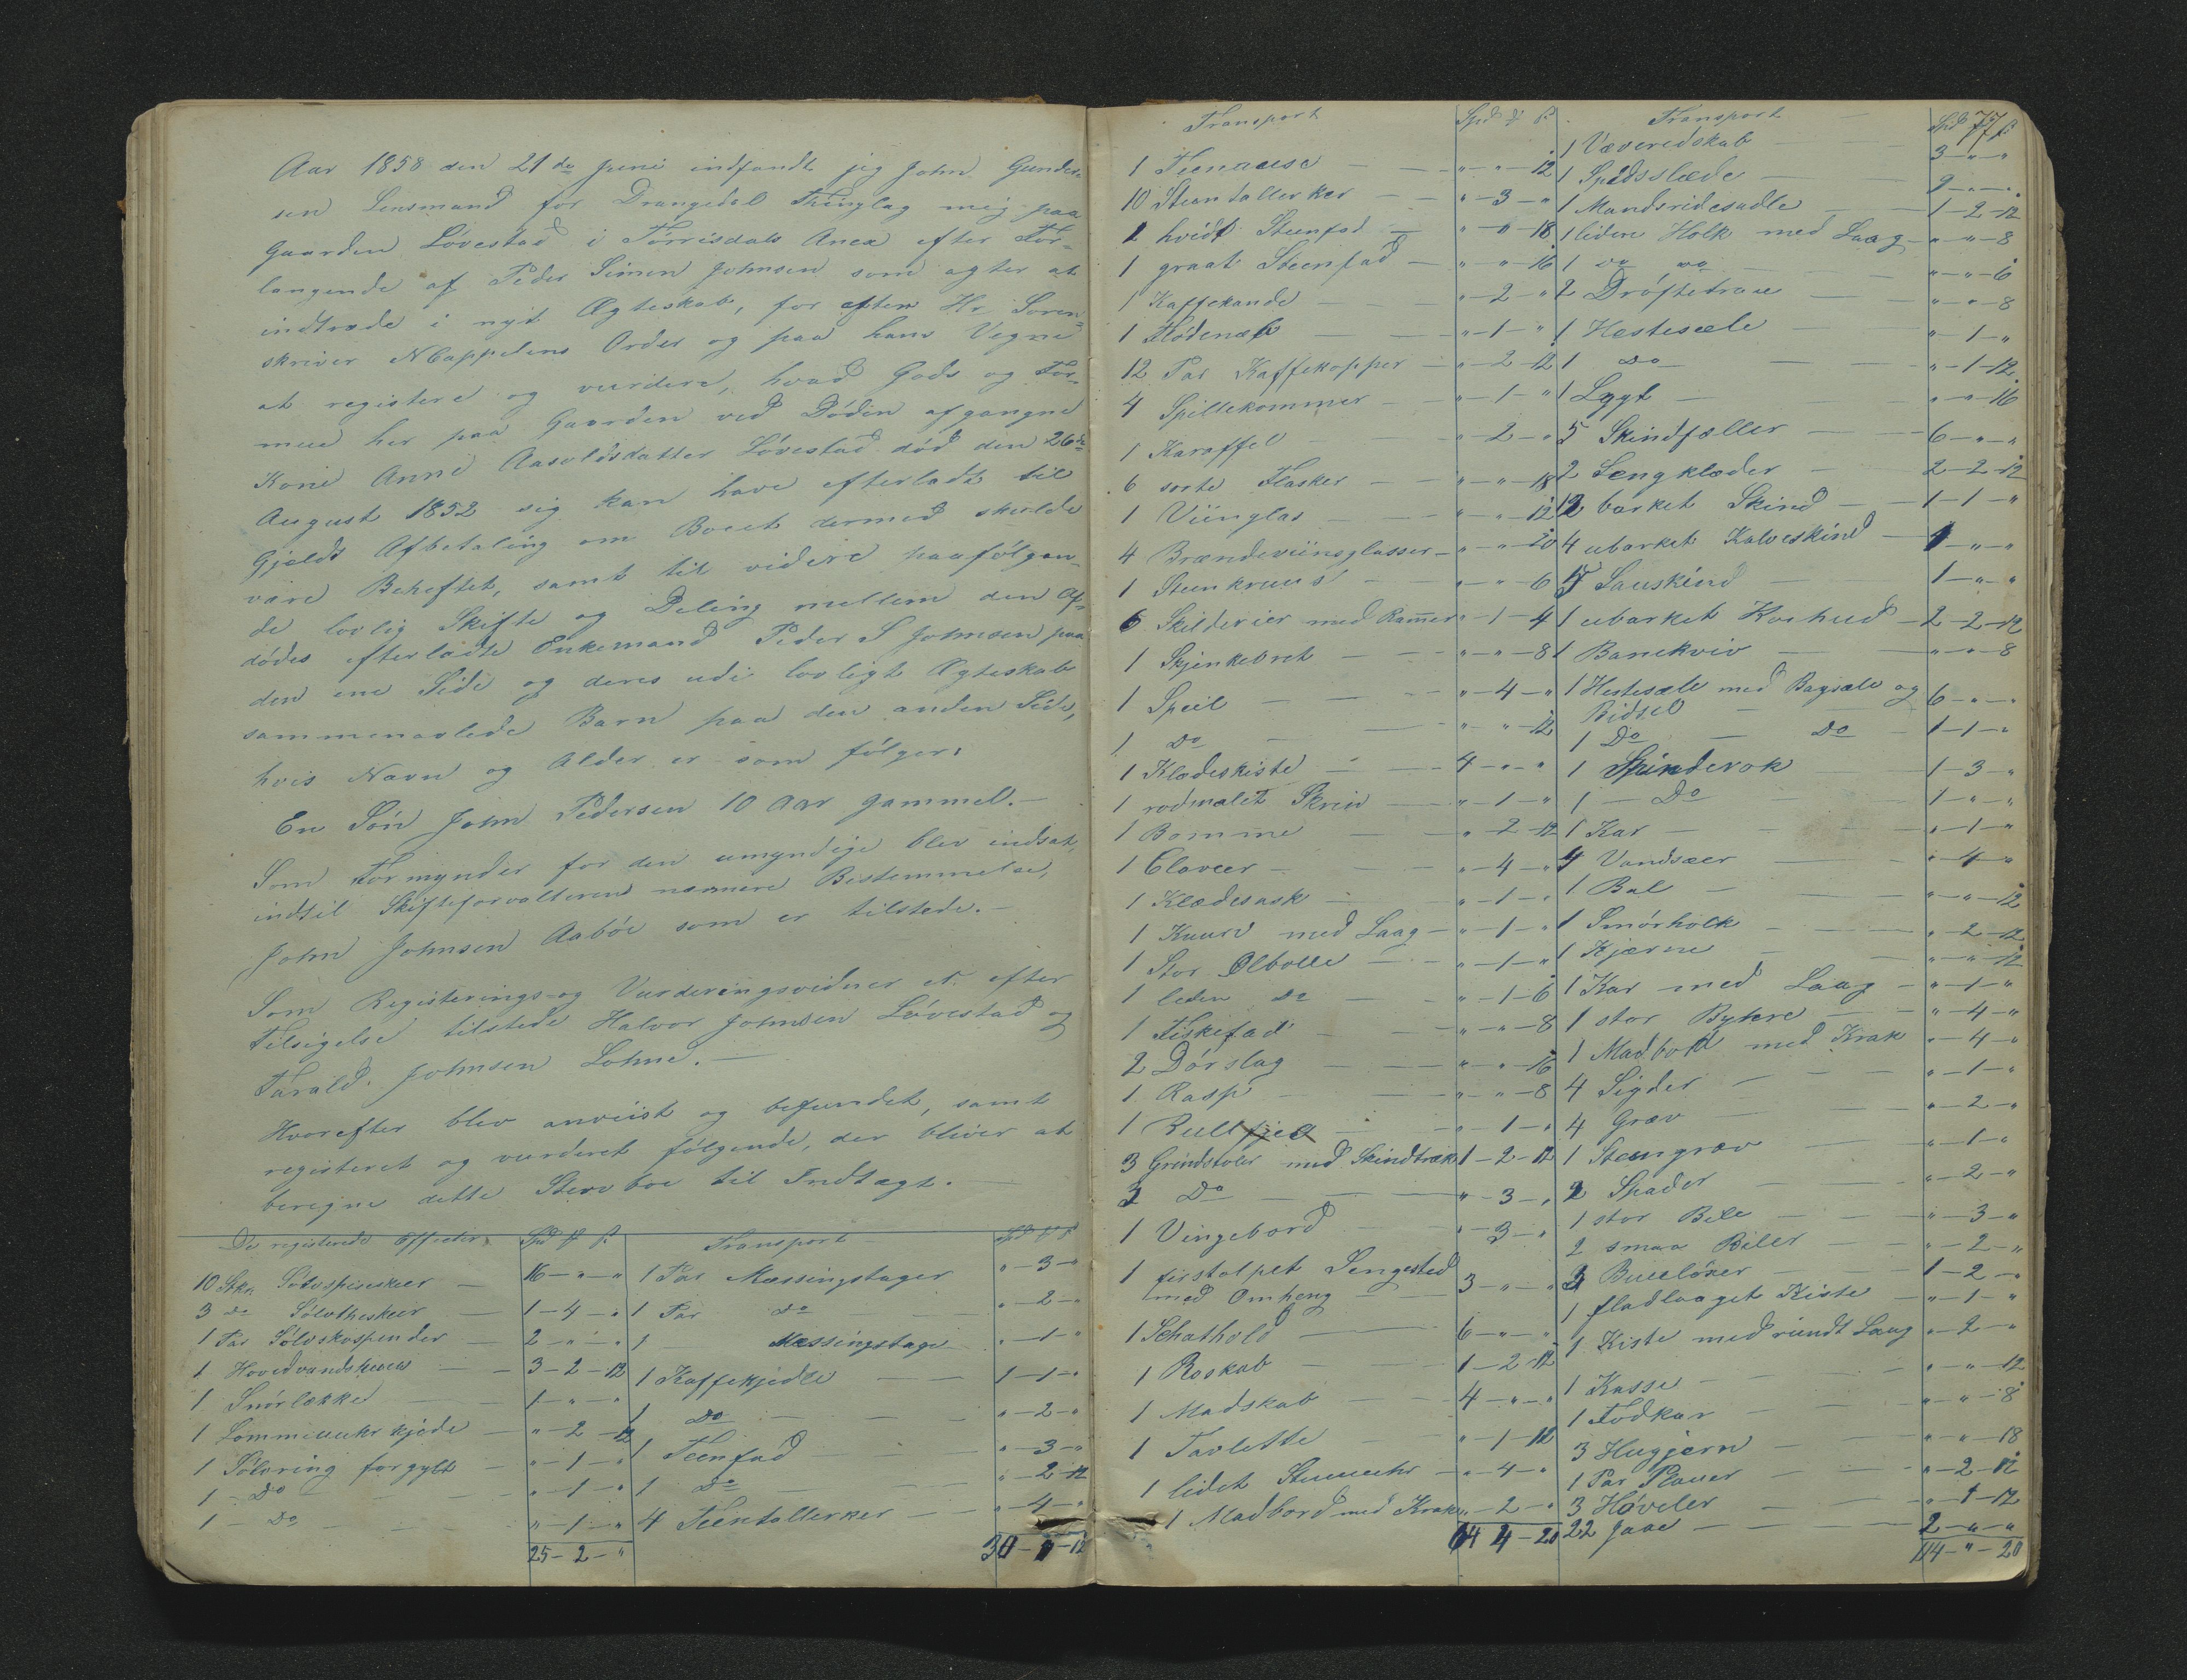 Aar 1858 den 21de Juni indfandt jeg John Gunder-
sen Lensmand for Drangedal Thinglag mig paa
Gaarden Lövestad i Törrisdals Anex efter For-
langende af Peder Simen Johnsen som agter at
indtræde i nyt Ægteskab, for efter Hr Soren-
skriver N Cappelens Ordre og paa hans Vegne
at registere og vurdere, hvad Gods og For-
mue her paa Gaarden ved Döden afgangne
Kone Anne Aasoldsdatter Lövestad död den 26de
August 1852 sig kan have efterladt til
Gjelds Afbetaling om Boeet dermed skulde
være Beheftet, samt til videre paafölgen-
de lovlig Skifte og Deling mellem den Af-
dödes efterladte Enkemand Peder S Johnsen paa
den ene Side og deres udi lovligt Ægteskab
sammenavlede Barn paa den anden Side,
hvis Navn og Alder er som fölger:
En Sön John Pedersen 10 Aar gammel.—
Som Formynder for den umyndige blev indsat,
indtil Skifteforvalteren nærmere Bestemmelse,
John Johnsen Aaböe som er tilstede.—
Som Registerings- og Vurderingsvidner et. efter
Tilsigelse tilstede Halvor Johnsen Lövestad og
Tarald Johnsen Lohne.—
Hvorefter blev anviist og befundet, samt
registeret og vurderet fölgende, der bliver at
beregne dette Stervboe til Indtægt.—
De registerede Effecter Spd ß
10 Stkr. Sölvspiseskeer — 16 - " - "
3 do Sölvtheskeer — 1 - 4 - "
1 Par Sölvskospender — 2 - " - "
1 Hovedvandshuus — 3 - 2 - 12
1 Snörlække — 1 - " - "
1 Lommeuuhr kjede — " - 2 - 12
1 Sölvring forgylt — " - 1 - "
1 — Do — " - 1 - "
1 — Do — " - 1 - "
25 - 2 - "
Transport Spd ß
1 Par Messingstager " - 3 - "
1 Par do — " - 2 - "
1 Messingstage " - 1 - "
1 Kaffekjedle — 1 - 1 - "
1 Do — " - 2 - "
1 Teenfad — " - 3 - "
1 Do — " - 2 - 12
4 Teentallerker — " - 4 - "
Transport Spd ß
1 Teenause — " - " - 12
10 Steentallerker — " - 3 - "
1 hvidt Steenfad — " - " - 18
1 graat Steenfad — " - " - 16
1 Kaffekande — " - 2 - "
1 Flödenæb — " - 1 - "
12 Par Kaffekopper — " - 2 - 12
4 Spillekommer — " - 1 - "
1 Karaffel — " - 2 - "
6 sorte Flasker — " - " - 18
1 Viinglas — " - " - 12
4 Brændeviinsglasser — " - " - 20
1 Steenkruus — " - " - 6
6 Skilderier med Ramer " - 1 - 4
1 Skjenkebret — " - " - 8
1 Speil — " - 4 - "
1 Do — " - " - 12
1 Klædeskiste — 4 - " - "
1 rödmalet Skriin — " - 1 - "
1 Bomme — " - 2 - 12
1 Claveer — " - 4 - "
1 Klædesask — " - 1 - "
1 Kuurv med Laag — " - 1 - "
1 Stor Ölbolle — " - 1 - "
1 leden Do — " - 1 - 6
1 Fiskefad — " - " - 8
2 Dörslag — " - " - 16
1 Rasp — " - " - 8
1 Rull — " - 1 - "
3 Grindstoler med Skindtræk 1 - 2 - 12
3 Do — " - 3 - "
1 Vingebord — " - 3 - "
1 firstolpet Sengested
med Omheng — 3 - " - "
1 Schathold — 6 - " - "
1 Roskab — 1 - 2 - 12
1 Madskab — 4 - " - "
1 Tavlette — " - 1 - 12
1 lidet Stueuuhr — " - 4 - "
1 Madbord med Krak " - 2 - "
Transport — Spd 77 ß
1 Væveredskab — 3 - " - "
1 Spidsslæde — 9 - " - "
1 Mandsridesadle — 1 - 2 - 12
1 liden Holk med Laag — " - " - 8
1 do do — " - " - 6
2 Dröftetrau — " - " - 8
1 Hestesæle — " - 1 - "
1 Do — " - 1 - 12
1 Lygt — " - " - 16
5 Skindfæller — 6 - " - "
2 Sengklæder — 2 - 2 - 12
2 barket Skind — 1 - 1 - "
4 ubarket Kalveskind — 1 - " - "
4 Saueskind — 1 - " - "
1 ubarket Kohud — 2 - 2 - 12
1 Banekviv — " - " - 8
1 Hestesæle med Bagsæle og
Bidsel — 6 - " - "
1 Do — Do 1 - 1 - "
1 Spinderok — 1 - 3 - "
1 — Do — 1 - " - "
1 Kar — " - 1 - "
4 Vandsæer — " - 4 - "
1 Bal — " - " - 12
1 Smörholk — " - 2 - 12
1 Kjærne — " - " - 12
1 Kar med Laag — " - 1 - "
1 stor Bykre — " - 4 - "
1 Madbord med Krak " - 4 - "
4 Sigder — " - 1 - "
4 Græv — " - 2 - "
1 Steengrev — " - 1 - "
2 Spader — " - 2 - "
1 stor Bile — " - 3 - "
2 smaa Biler — " - 2 - "
3 Buelöxer — 1 - 2 - "
1 fladlaaget Kiste — " - 1 - "
1 Kiste med rundt Laag " - 2 - "
1 Kasse — " - " - 12
1 Fodkar — " - " - 8
3 Hugjern — " - " - 18
1 Par Plauer — " - 2 - 12
3 Hövler — " - 1 - 12
22 Jaae — 2 - " - "